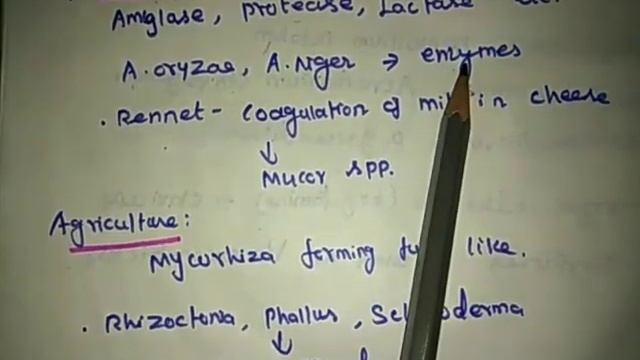 Amylase, protease, Lactase
A. oryzae, A. Niger → enzymes
. Rennet - Coagulation of milk in cheese
↓
Mucor spp.
Agriculture:
Mycorhiza forming like.
. Rhizoctonia, Phallus, Scleroderma
↓